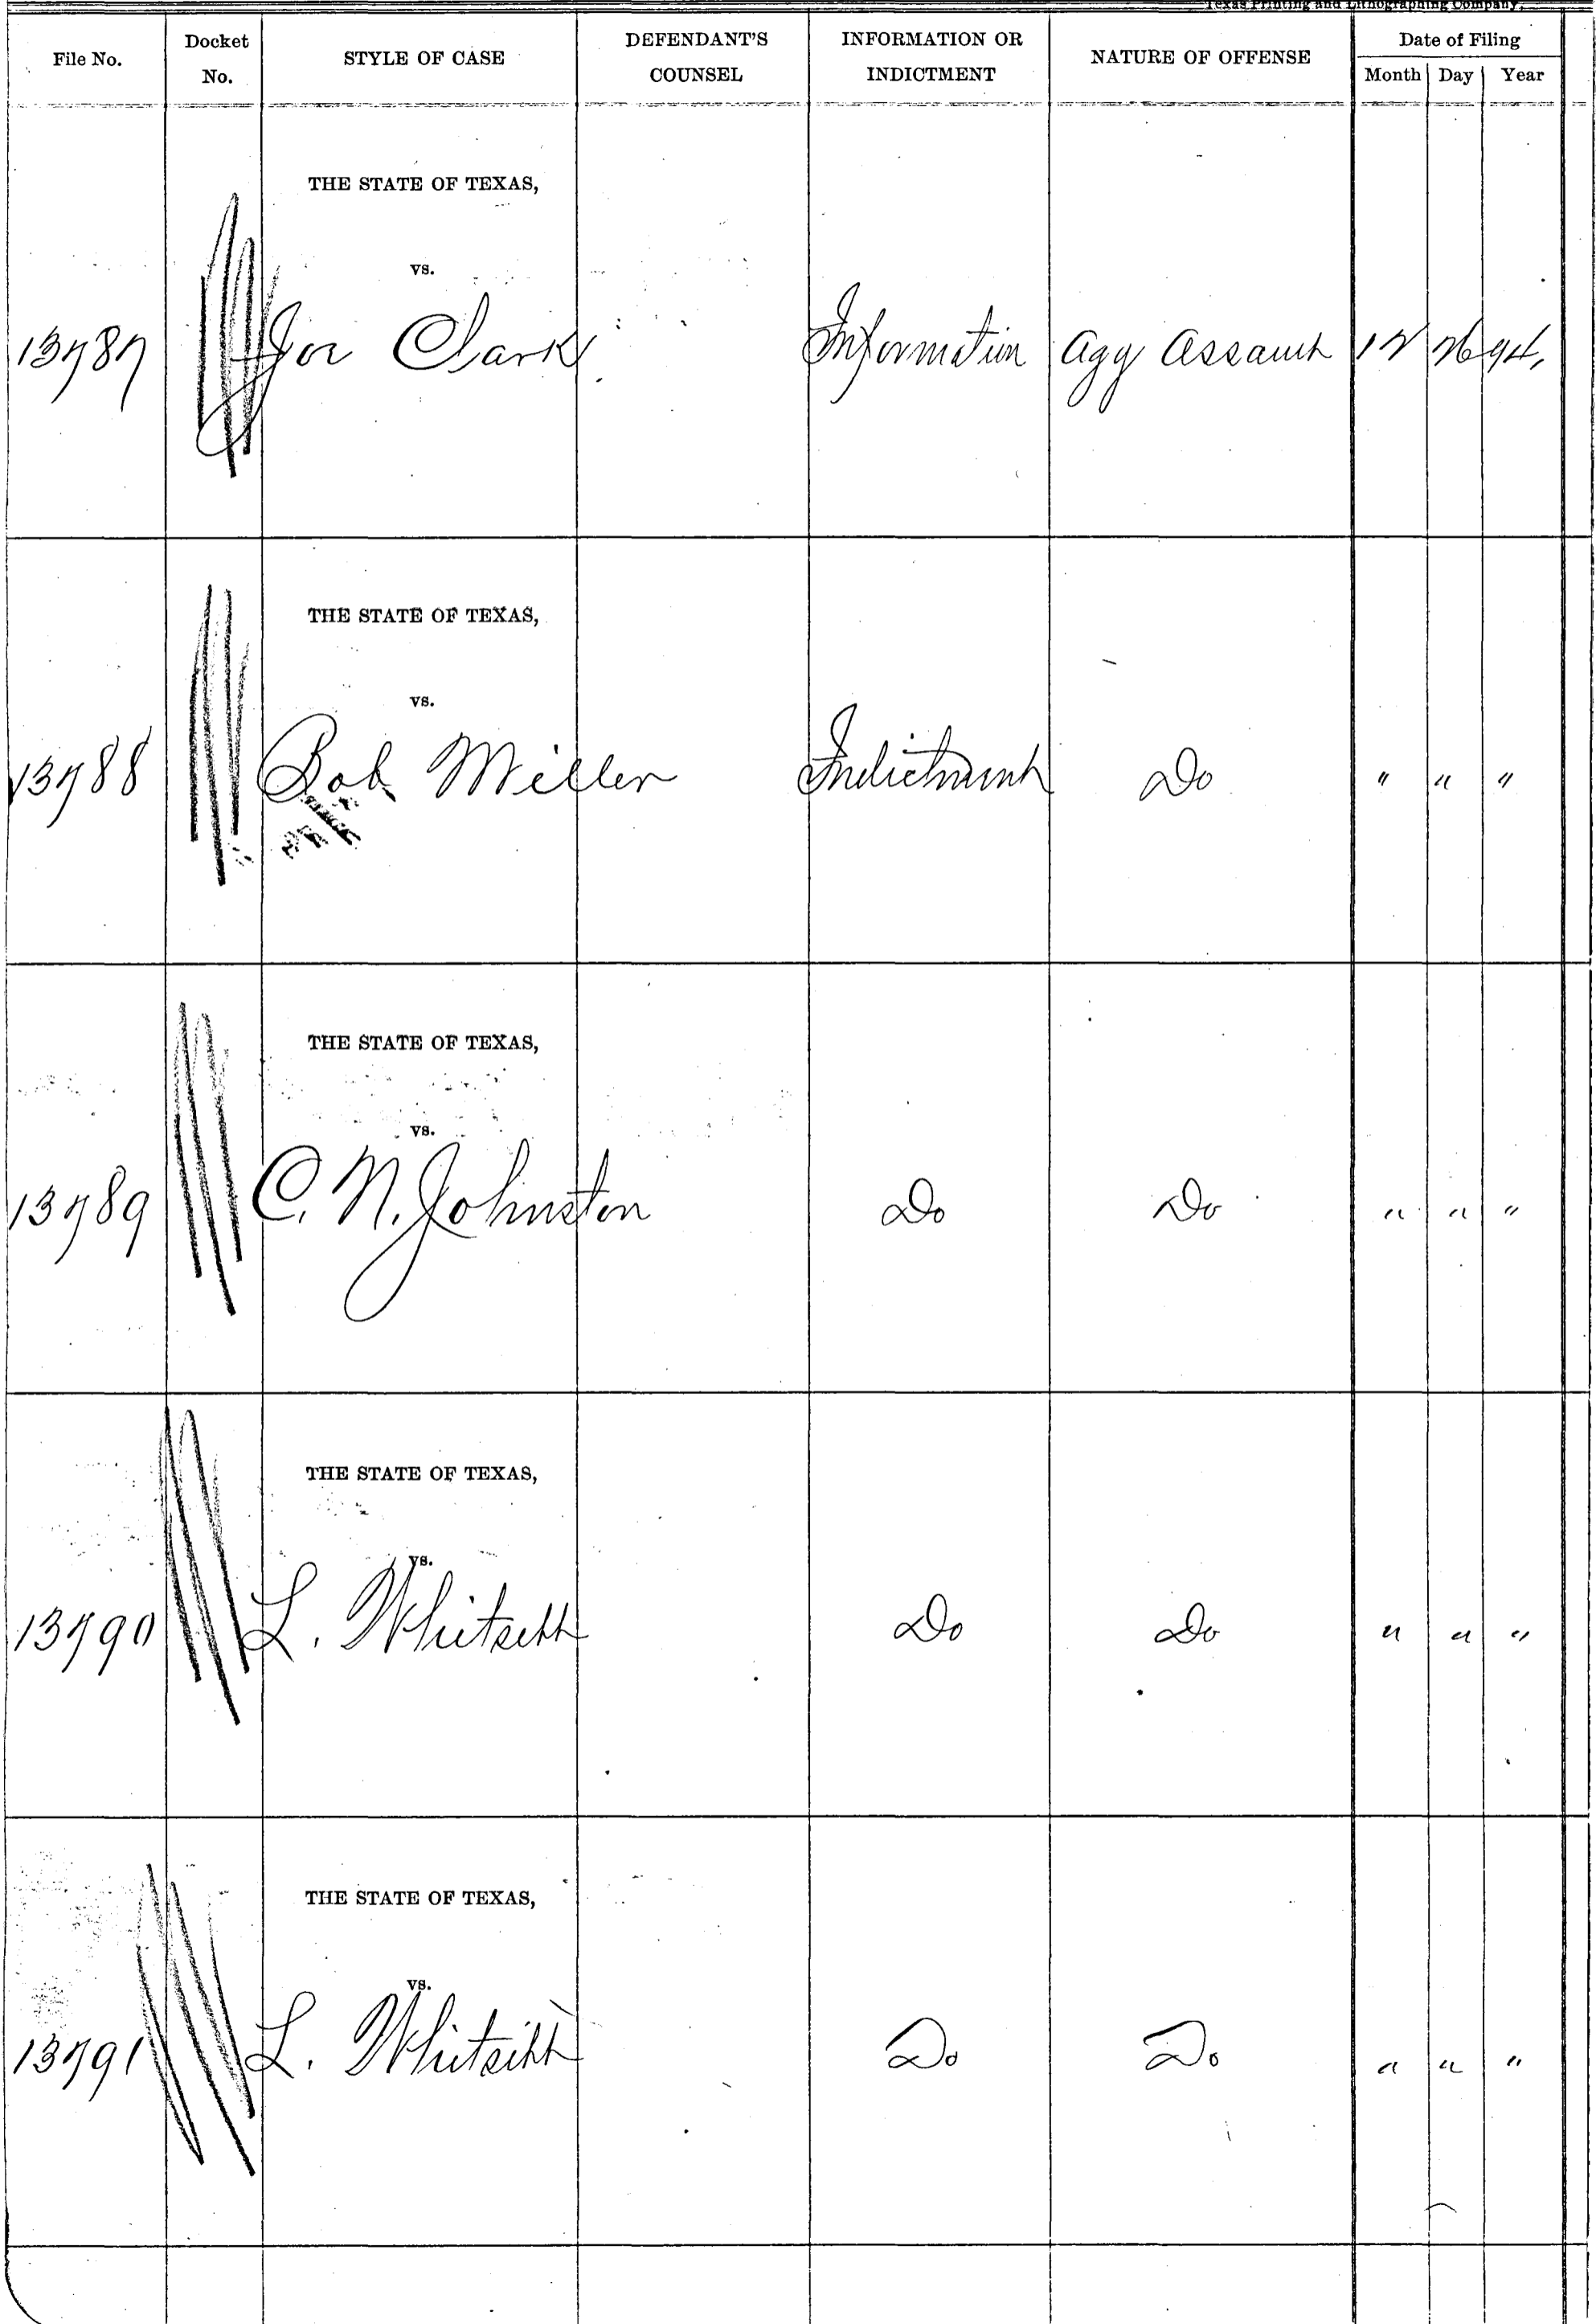 Texas Printing and Lithographing Company.
File No. Docket No. STYLE OF CASE DEFENDANT'S COUNSEL INFORMATION OR INDICTMENT NATURE OF OFFENSE Date of Filing
Month Day Year
THE STATE OF TEXAS,
vs.
13787 Joe Clark Information Agg Assault 12 26 94,
THE STATE OF TEXAS,
vs.
13788 Bob Miller Indictment Do " " "
THE STATE OF TEXAS,
vs.
13789 C. N. Johnston Do Do " " "
THE STATE OF TEXAS,
vs.
13790 L. Whitsett Do Do " " "
THE STATE OF TEXAS,
vs.
13791 L. Whitsitt Do Do " " "